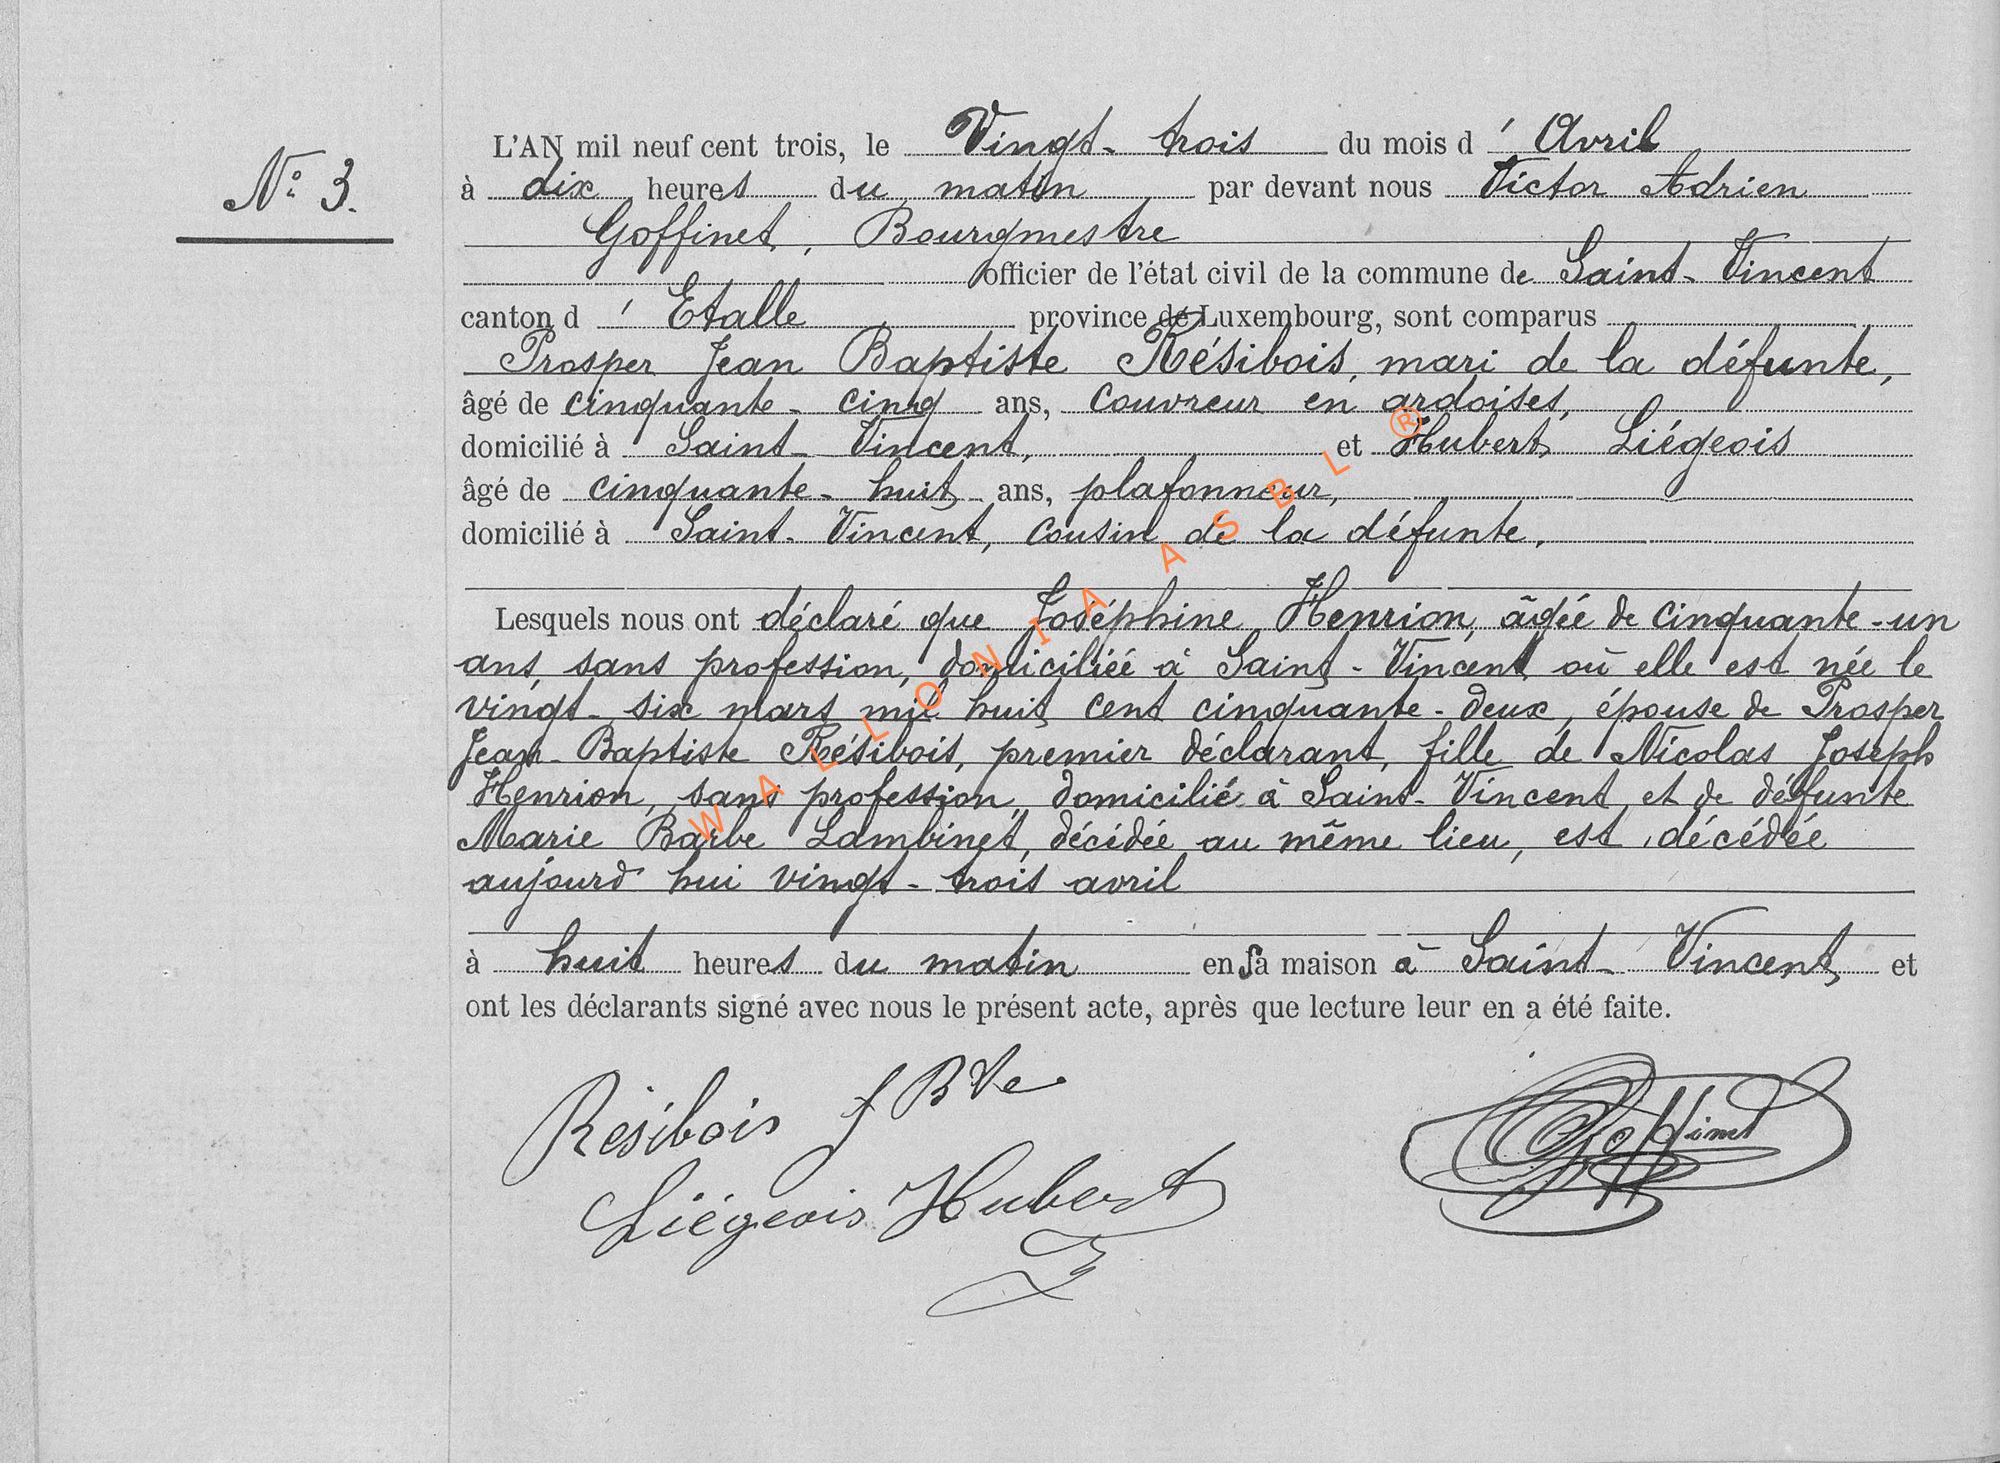 N° 3.
L'AN mil neuf cent trois, le Vingt-trois du mois d' Avril
à dix heures du matin par devant nous Victor Adrien
Goffinet, Bourgmestre
officier de l'état civil de la commune de Saint-Vincent
canton d' Etalle province de Luxembourg, sont comparus
Prosper Jean Baptiste Résibois, mari de la défunte,
âgé de cinquante-cinq ans, couvreur en ardoises,
domicilié à Saint-Vincent, et Hubert Liégeois
âgé de cinquante-huit ans, plafonneur,
domicilié à Saint-Vincent, cousin de la défunte.
Lesquels nous ont déclaré que Joséphine Henrion, âgée de cinquante-un
ans, sans profession, domiciliée à Saint-Vincent où elle est née le
vingt-six mars mil huit cent cinquante-deux, épouse de Prosper
Jean-Baptiste Résibois, premier déclarant, fille de Nicolas Joseph
Henrion, sans profession, domicilié à Saint-Vincent et de défunte
Marie Barbe Lambinet, décédée au même lieu, est décédée
aujourd'hui vingt-trois avril
à huit heures du matin en sa maison à Saint-Vincent, et
ont les déclarants signé avec nous le présent acte, après que lecture leur en a été faite.
Résibois J Bte
Goffinet
Liégeois Hubert
WALLONIA ASBL ®